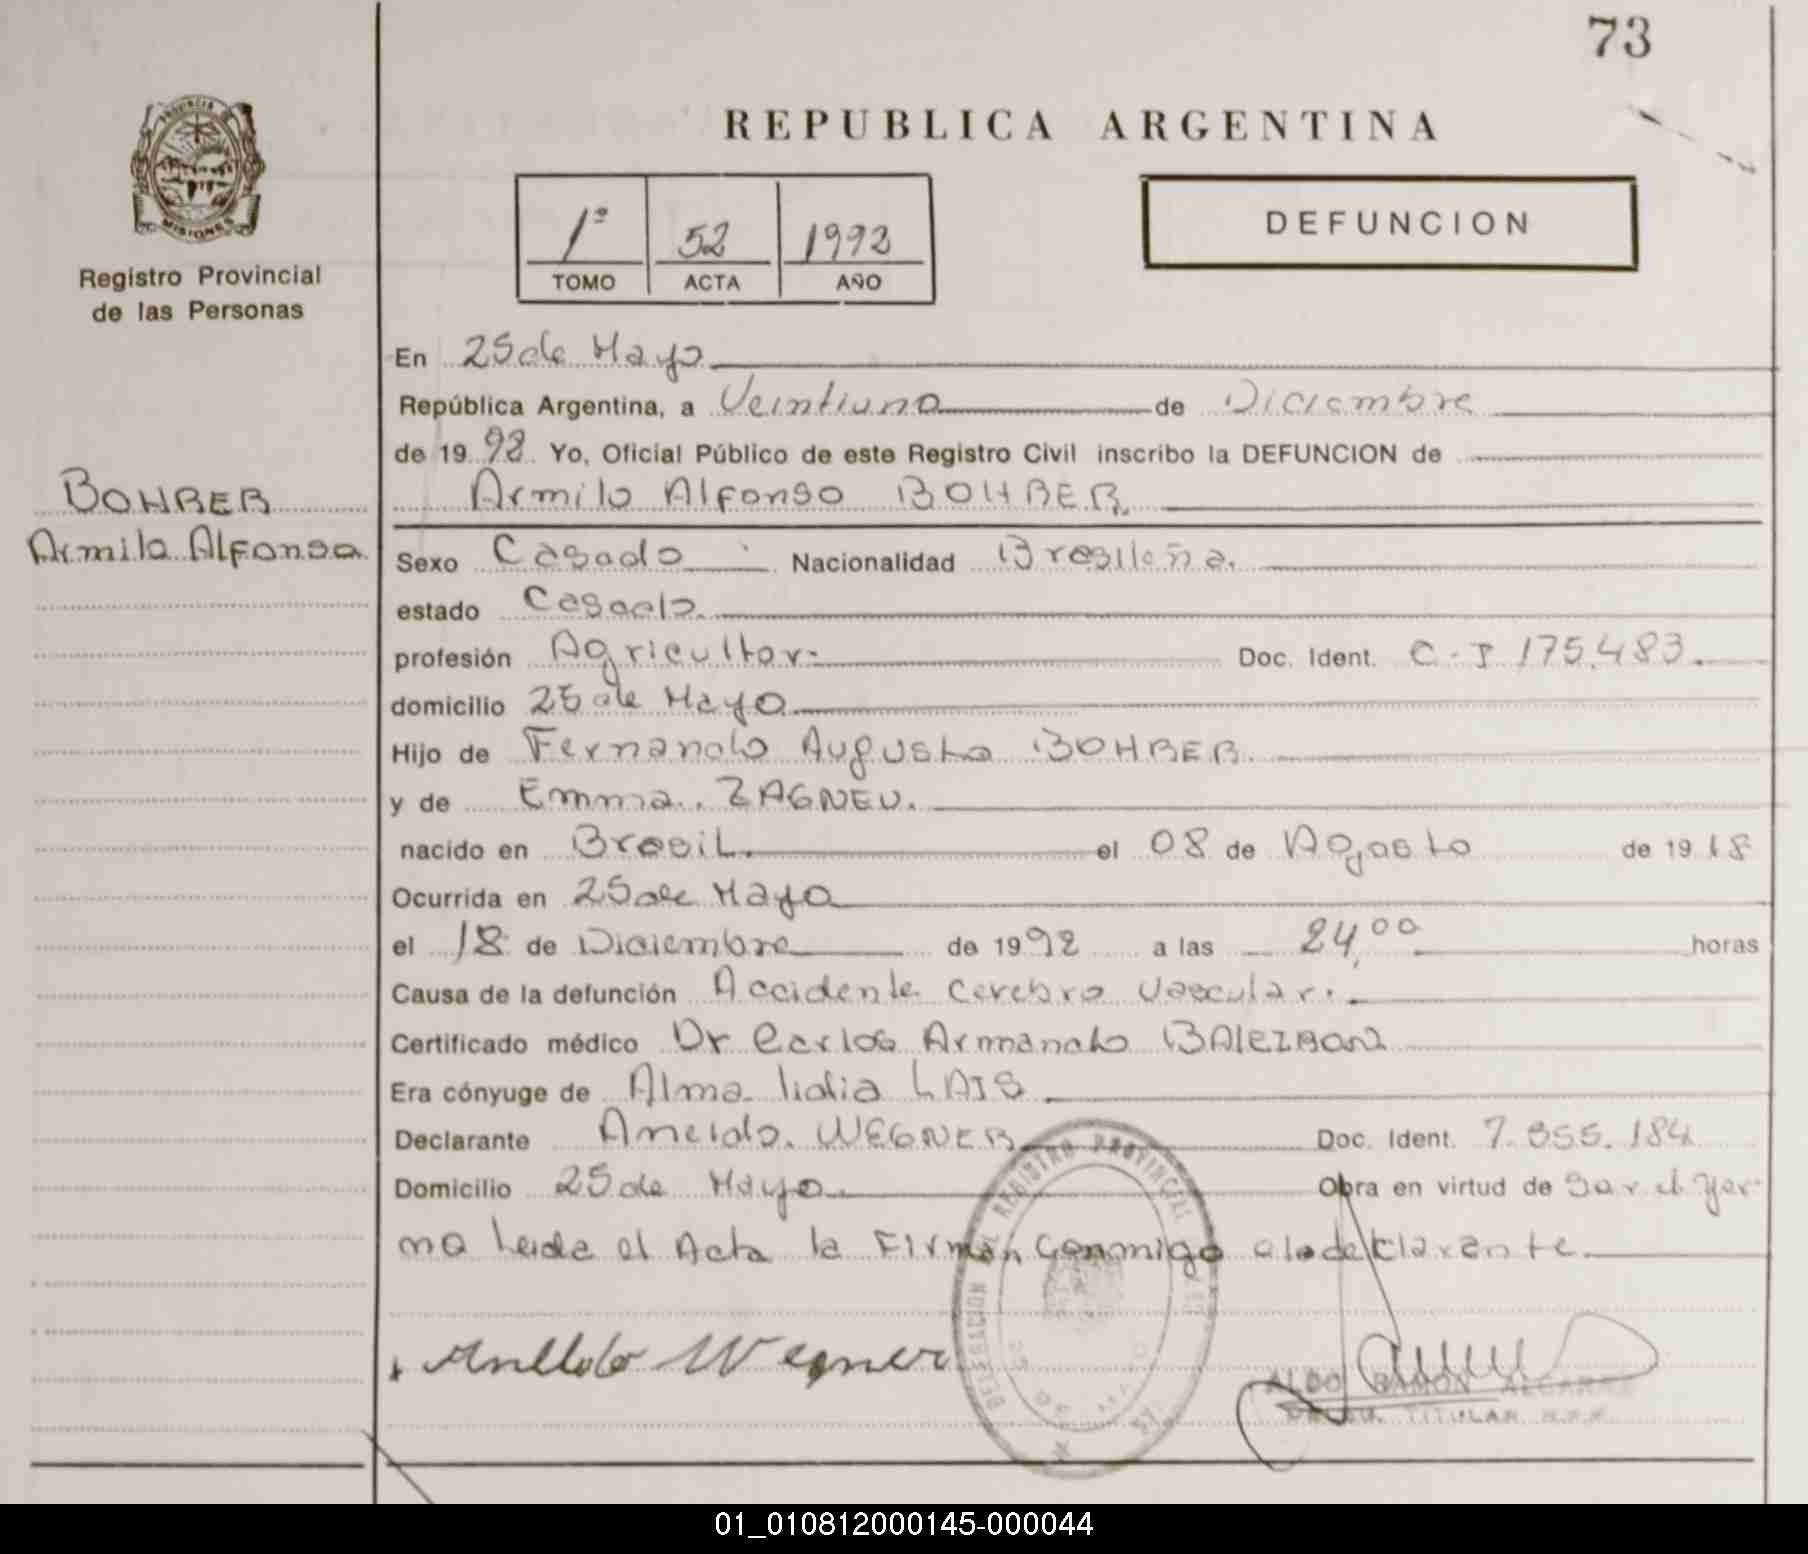 73
PROVINCIA DE
MISIONES
Registro Provincial
de las Personas
REPUBLICA ARGENTINA
1º 52 1992
TOMO ACTA AÑO
DEFUNCION
En 25 de Mayo
República Argentina, a Veintiuno de Diciembre
de 19 92 Yo, Oficial Público de este Registro Civil inscribo la DEFUNCION de
BOHRER
Armilo Alfonso BOHRER
Armilo Alfonso
Sexo Casado Nacionalidad Brasileña.
estado Casado.
profesión Agricultor. Doc. Ident. C.I 175.483.
domicilio 25 de Mayo
Hijo de Fernando Augusto BOHRER.
y de Emma ZAGNEU.
nacido en Brasil. el 08 de Agosto de 19 18
Ocurrida en 25 de Mayo
el 18 de Diciembre de 19 92 a las 24,00 horas
Causa de la defunción Accidente cerebro vascular.
Certificado médico Dr Carlos Armando
Era cónyuge de Alma lidia LAIS
Declarante WEGNER Doc. Ident. 7.355.184
Domicilio 25 de Mayo. Obra en virtud de Sar el yer
no Leida el Acta la Firman conmigo el declarante.
Wegner
DELEGACION DEL REGISTRO PROVINCIAL
25 DE MAYO
ALDO RAMON
TITULAR
01_010812000145-000044